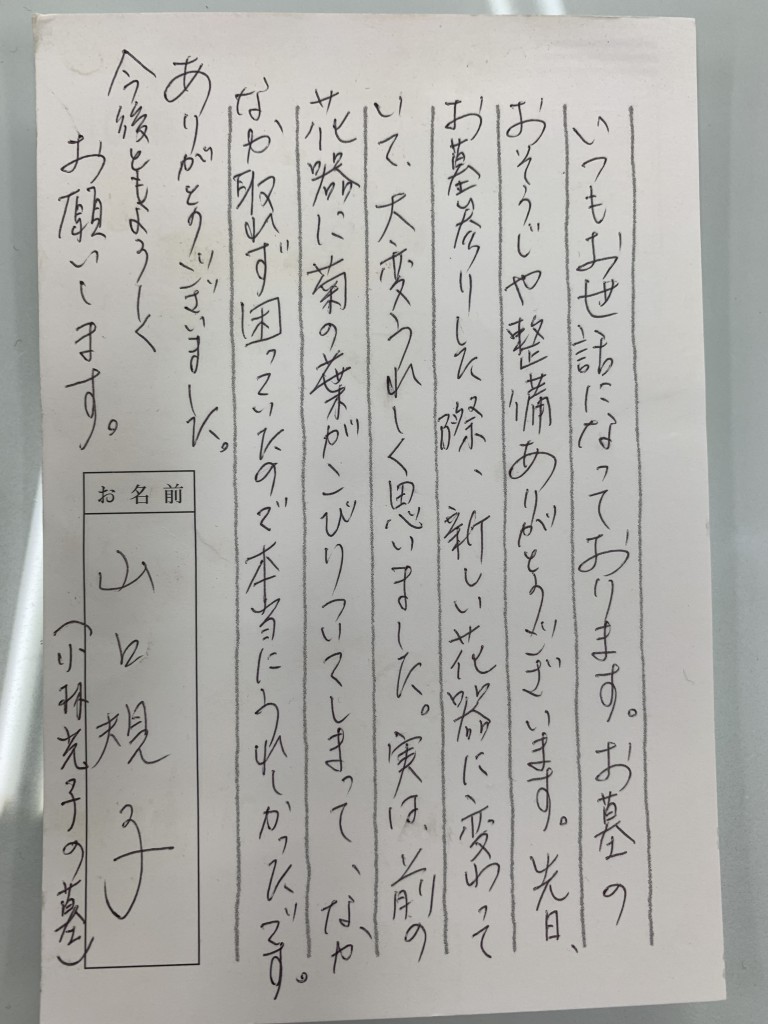 いつもお世話になっております。お墓の
おそうじや整備ありがとうございます。先日、
お墓参りした際、新しい花器に変わって
いて、大変うれしく思いました。実は、前の
花器に菊の葉がこびりついてしまって、なか
なか取れず困っていたので本当にうれしかったです。
ありがとうございました。
今後ともよろしく
お願いします。
お名前
山口規子
(小林克子の墓)